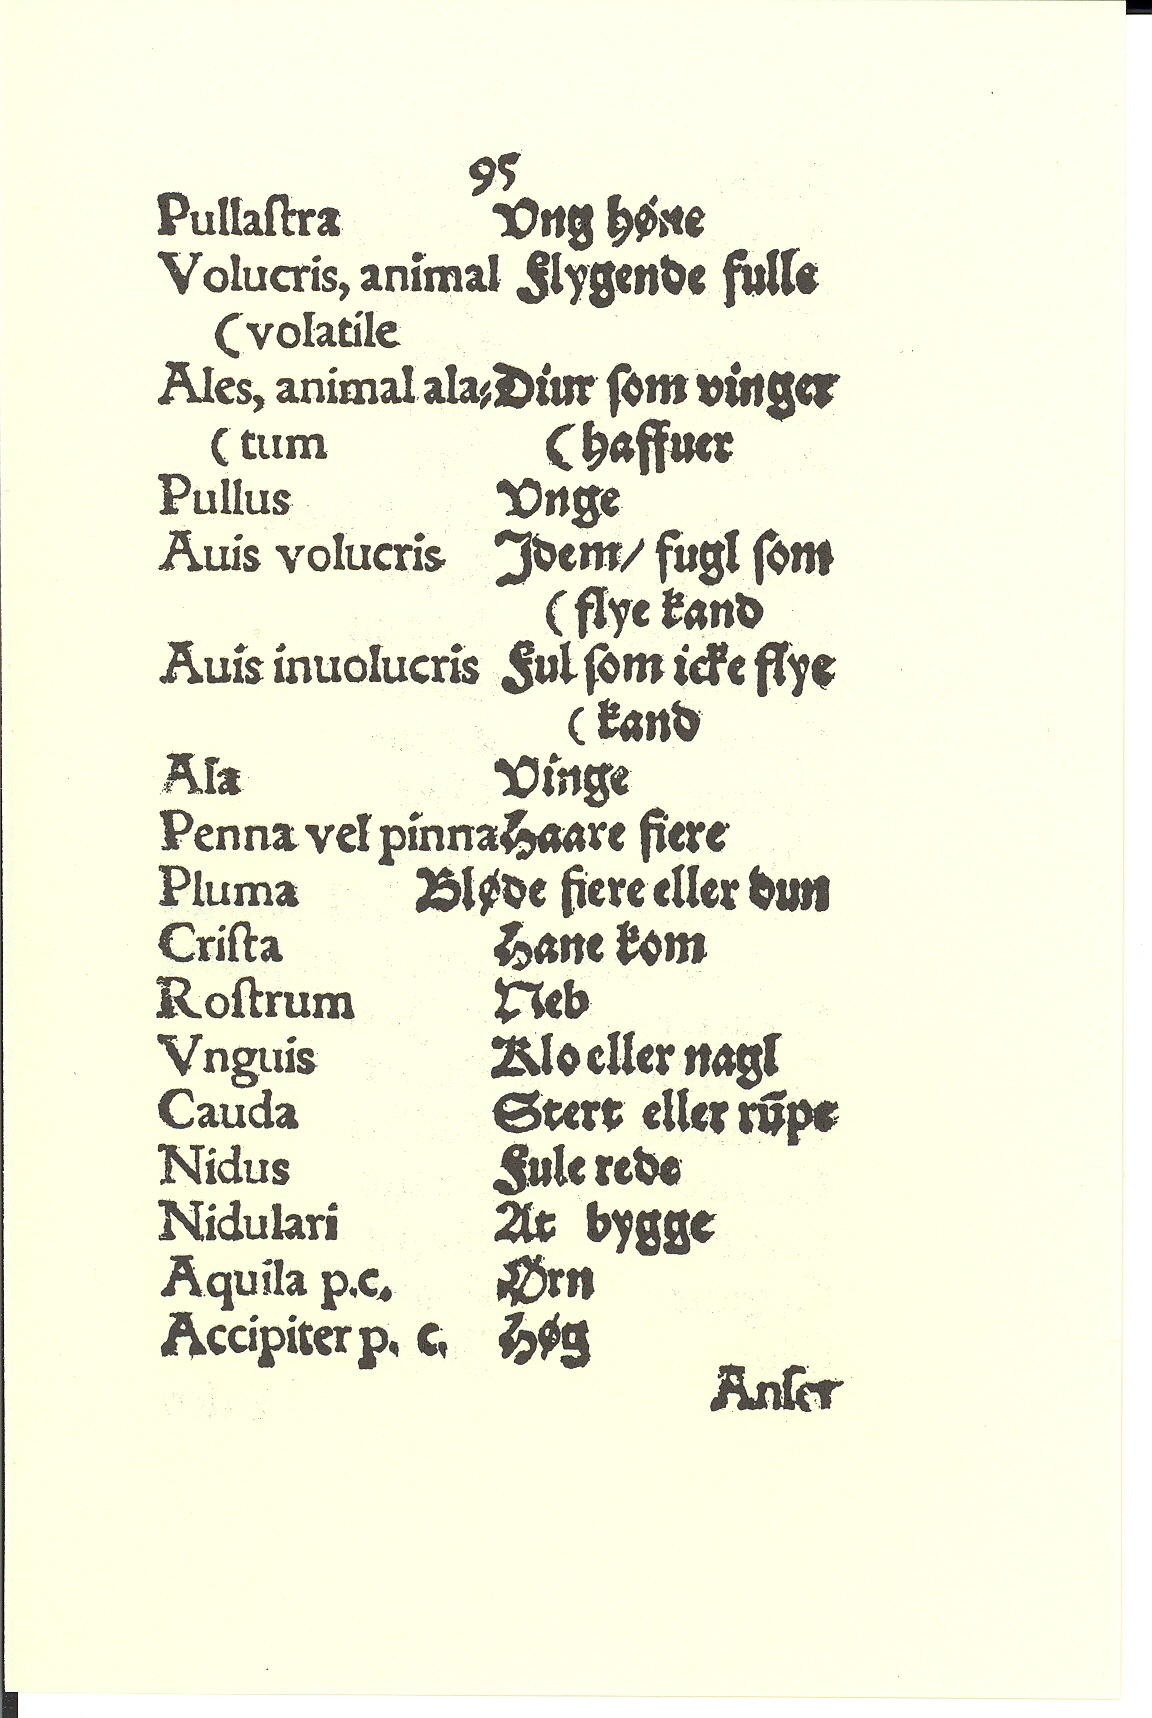 95
Pullaſtra Vng høne
Volucris, animal Flygende fulle
(volatile
Ales, animal ala⸗ Diur ſom vinger
(tum (haffuer
Pullus Vnge
Auis volucris Jdem/ fugl ſom
(flye kand
Auis inuolucris Ful ſom icke flye
(kand
Ala Vinge
Penna vel pinna Haare fiere
Pluma Bløde fiere eller dun
Criſta Hane kom
Roſtrum Neb
Vnguis Klo eller nagl
Cauda Stert eller rūpe
Nidus Fule rede
Nidulari At bygge
Aquila p.c. Ørn
Accipiter p. c. Høg
Anſer